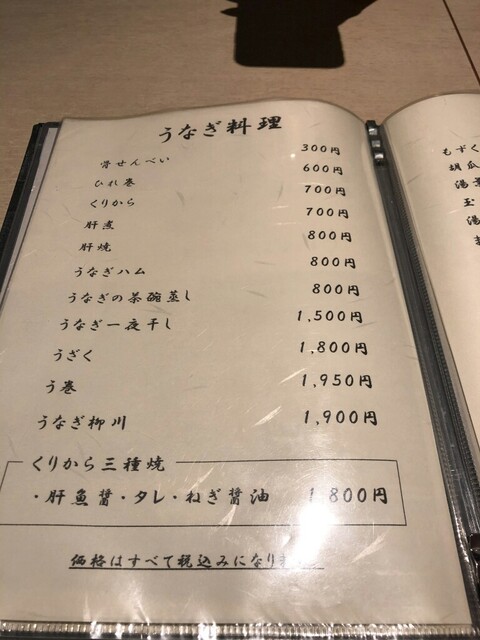 うなぎ料理
骨せんべい 300円
ひれ巻 600円
くりから 700円
肝煮 700円
肝焼 800円
うなぎハム 800円
うなぎの茶碗蒸し 800円
うなぎ一夜干し 1,500円
うざく 1,800円
う巻 1,950円
うなぎ柳川 1,900円
くりから三種焼
・肝魚醤・タレ・ねぎ醤油 1,800円
価格はすべて税込みになり
もずく
胡瓜
湯
玉
湯